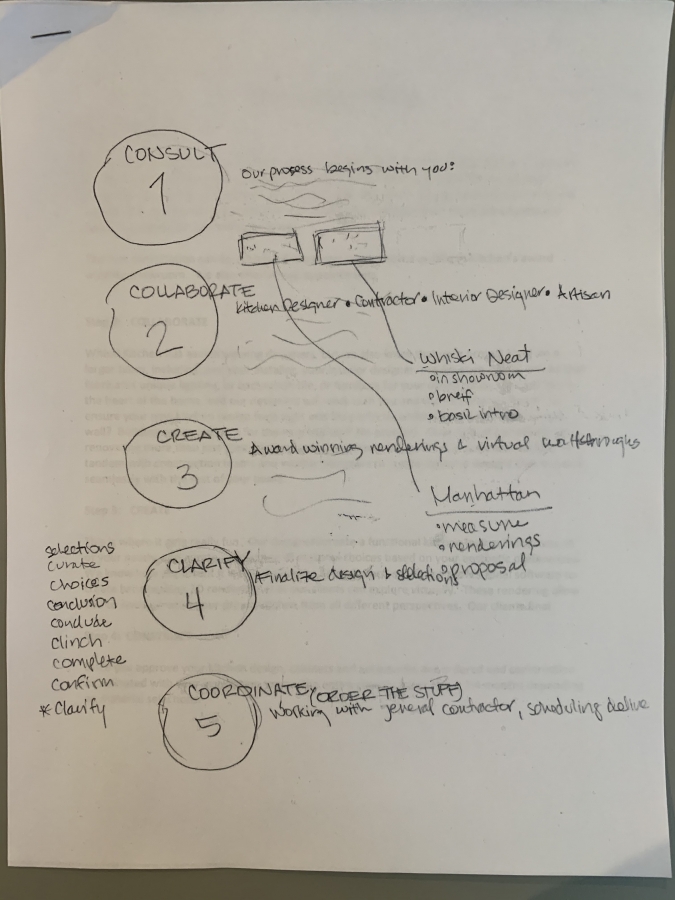 CONSULT
1
Our prosess begins with you:
COLLABORATE
2
Kitchen Designer • Contractor • Interior Designer • Artisan
Whiski Neat
• in showroom
• breif
• basic intro
CREATE
3
Award winning renderings & virtual walkthroughs
Manhattan
• measure
• renderings
• proposal
CLARIFY
4
Finalize design & selections
selections
curate
choices
conclusion
conclude
clinch
complete
confirm
* Clarify
COORDINATE (ORDER THE STUFF)
5
Working with general contractor, scheduling delive